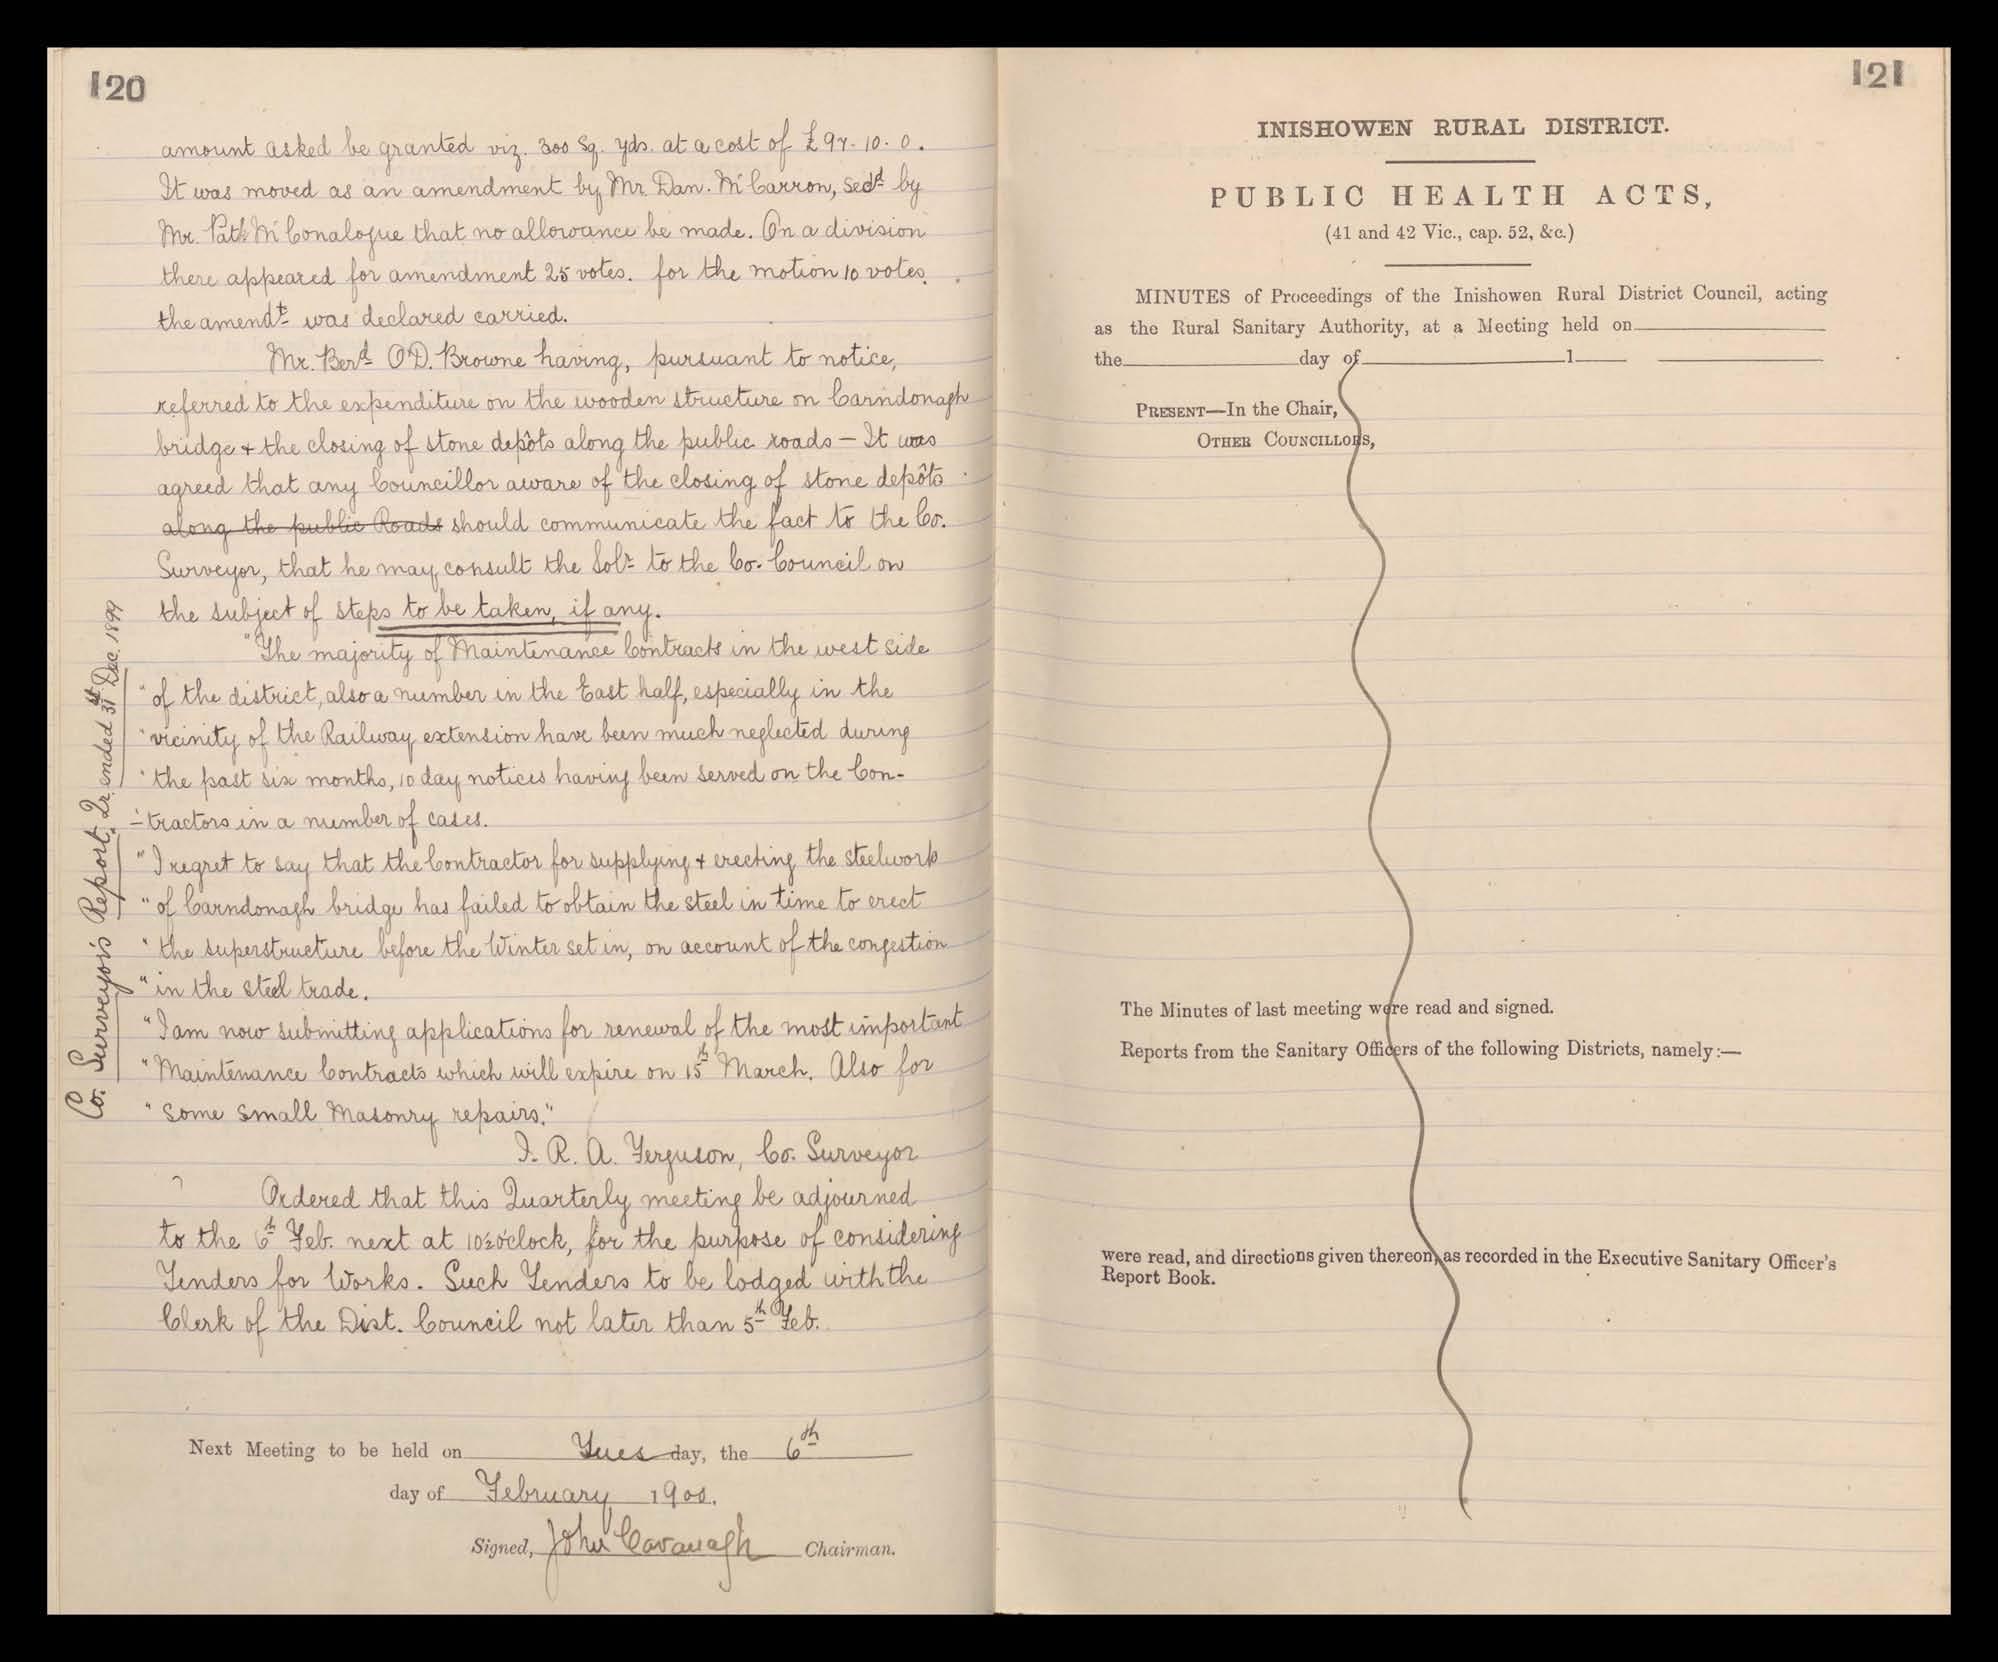 120
amount asked be granted viz. 300 Sq. yds. at a cost of £97. 10. 0.
It was moved as an amendment by Mr. Dan. McCarron, Secd. by
Mr. Patk. McConalogue that no allowance be made. On a division
there appeared for amendment 25 votes. for the motion 10 votes.
the amendt. was declared carried.
Mr. Berd. O'D. Browne having, pursuant to notice,
referred to the expenditure on the wooden structure on Carndonagh
bridge & the closing of stone depôts along the public roads – It was
agreed that any Councillor aware of the closing of stone depôts
along the public Roads should communicate the fact to the Co.
Surveyor, that he may consult the Solr. to the Co. Council on
the subject of steps to be taken, if any.
Co. Surveyor's Report, Qr. ended 31st Dec. 1899
"The majority of Maintenance Contracts in the west side
"of the district, also a number in the East half, especially in the
"vicinity of the Railway extension have been much neglected during
"the past six months, 10 day notices having been served on the Con-
"-tractors in a number of cases.
"I regret to say that the Contractor for supplying & erecting the steelwork
"of Carndonagh bridge has failed to obtain the steel in time to erect
"the superstructure before the Winter set in, on account of the congestion
"in the steel trade.
"I am now submitting applications for renewal of the most important
"Maintenance Contracts which will expire on 15th March. Also for
"some small Masonry repairs."
J. R. A. Ferguson, Co. Surveyor
Ordered that this Quarterly meeting be adjourned
to the 6th Feb. next at 10½ o'clock, for the purpose of considering
Tenders for Works. Such Tenders to be lodged with the
Clerk of the Dist. Council not later than 5th Feb.
Next Meeting to be held on Tuesday, the 6th
day of February 1900.
Signed, John Cavanagh Chairman.
121
INISHOWEN RURAL DISTRICT.
PUBLIC HEALTH ACTS,
(41 and 42 Vic., cap. 52, &c.)
MINUTES of Proceedings of the Inishowen Rural District Council, acting
as the Rural Sanitary Authority, at a Meeting held on
the day of 1
PRESENT—In the Chair,
OTHER COUNCILLORS,
The Minutes of last meeting were read and signed.
Reports from the Sanitary Officers of the following Districts, namely:—
were read, and directions given thereon, as recorded in the Executive Sanitary Officer's
Report Book.